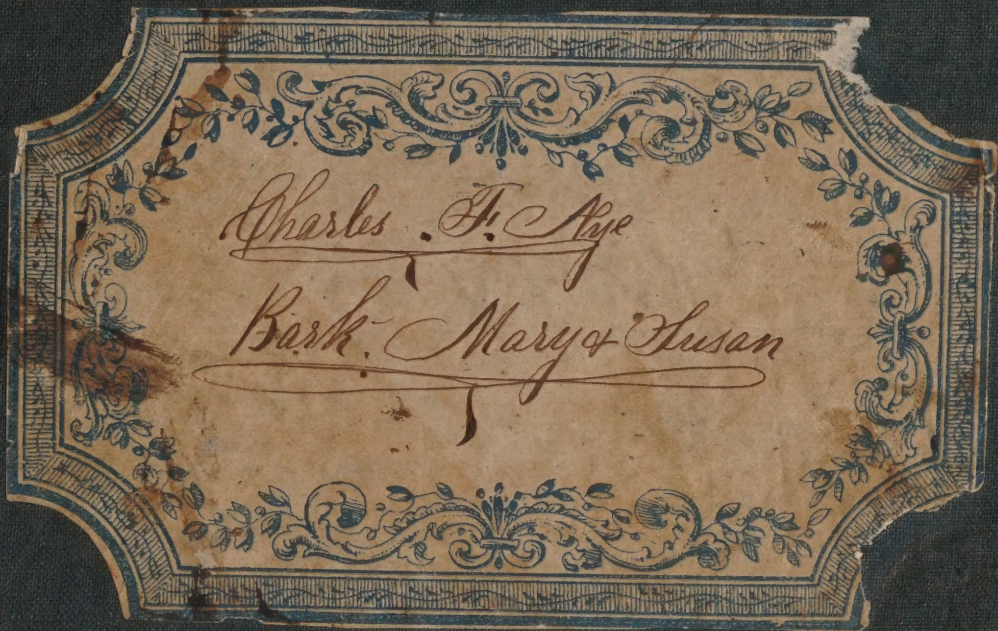 Charles . F. Nye
Bark. Mary & Susan